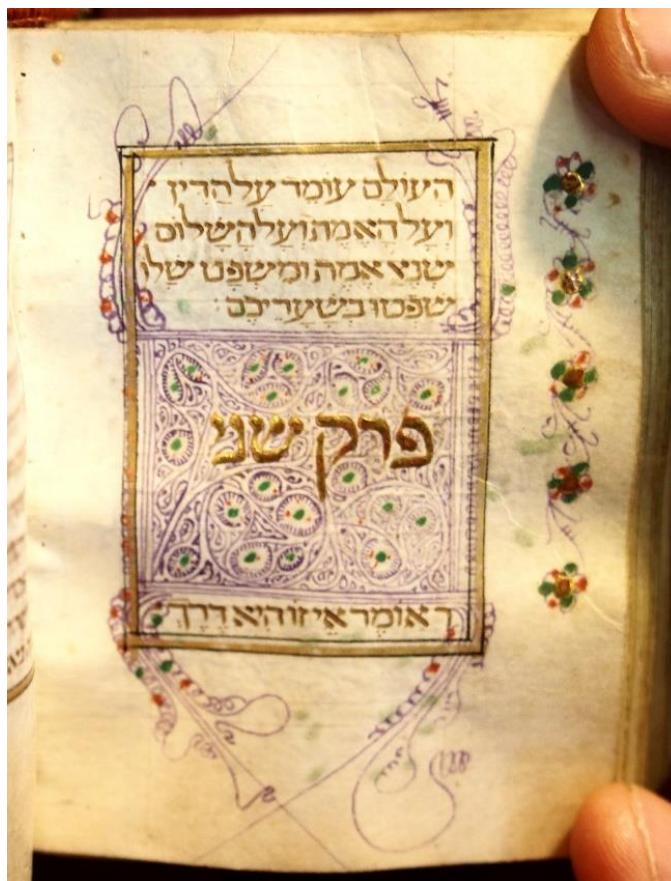 העולם עומד על הדין
ועל האמת ועל השלום
שנא אמת ומשפט שלו
שפטו בשעריכם:
פרק שני
ר אומר איזו היא דרך